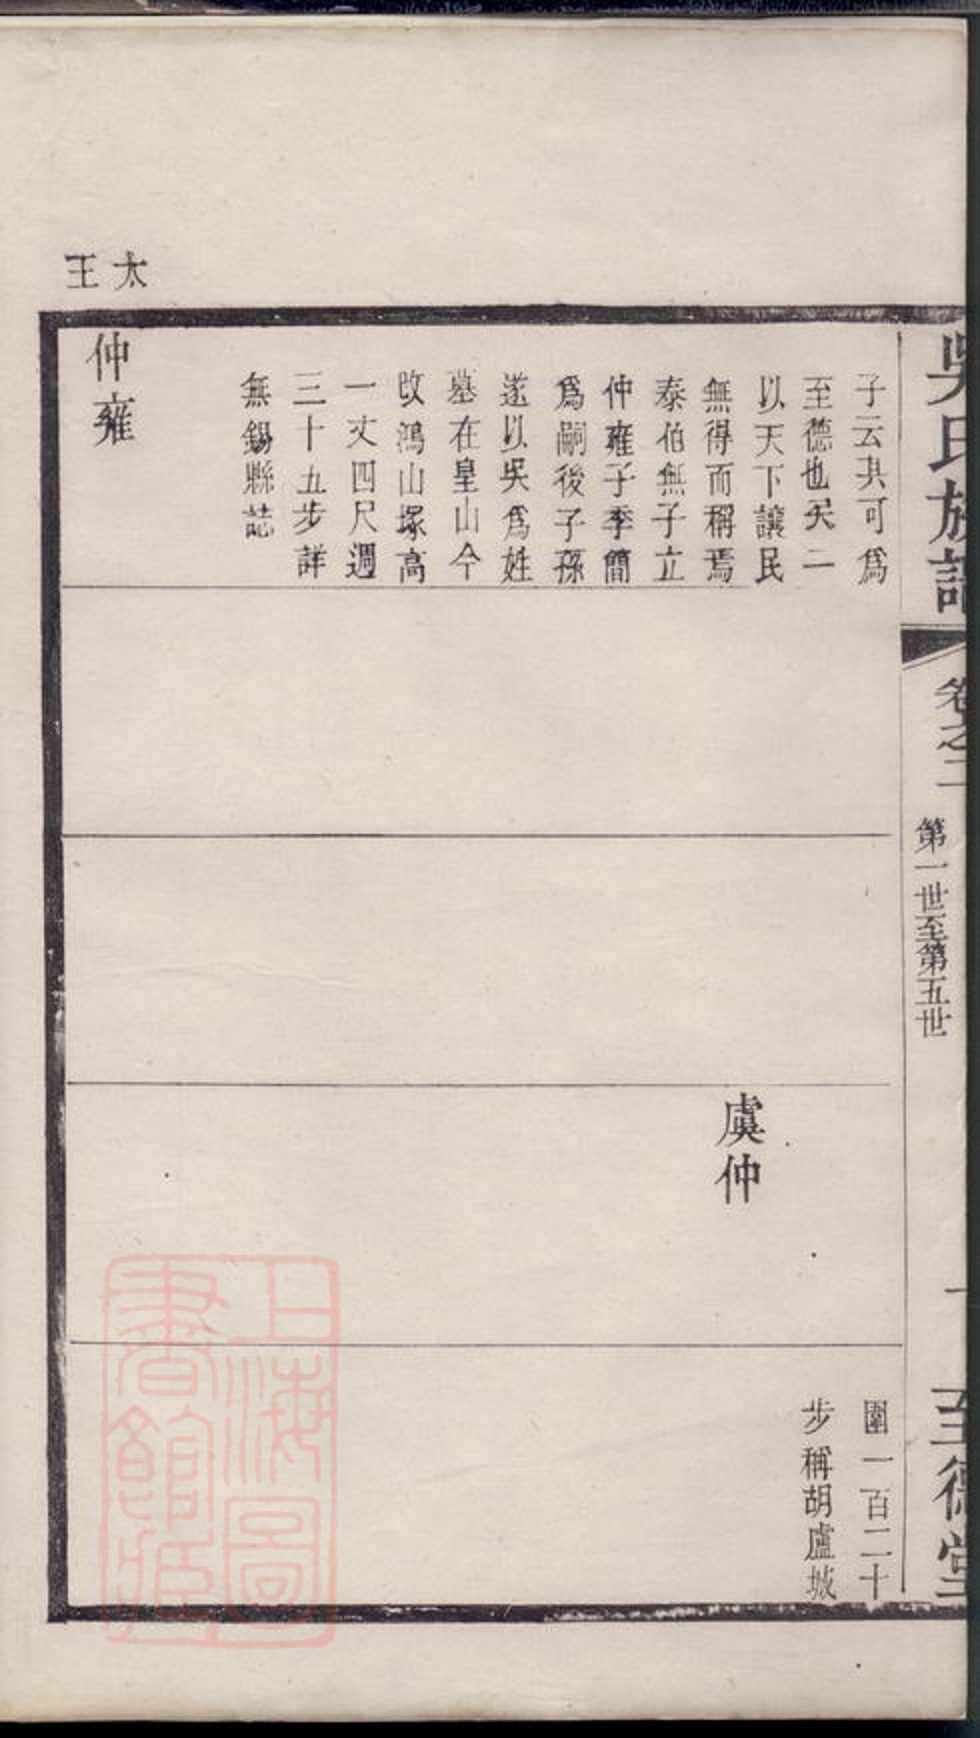 吳氏族譜
卷之二
第一世至第五世
一
至德堂
子云其可爲
至德也矣二
以天下讓民
無得而稱焉
泰伯無子立
仲雍子季簡
爲嗣後子孫
遂以吳爲姓
墓在皇山今
改鴻山塚高
一丈四尺週
三十五步詳
無錫縣誌
太
王
仲雍
虞仲
圍一百二十
步稱胡盧城
上海圖
書館藏